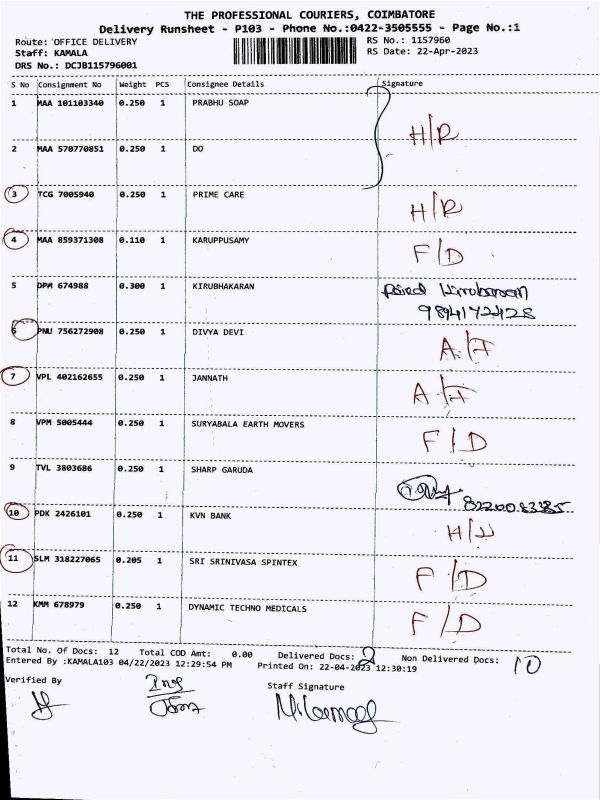 THE PROFESSIONAL COURIERS, COIMBATORE
Delivery Runsheet - P103 - Phone No.:0422-3505555 - Page No.:1
Route: OFFICE DELIVERY RS No.: 1157960
Staff: KAMALA RS Date: 22-Apr-2023
DRS No.: DCJB115796001
S No Consignment No Weight PCS Consignee Details Signature
1 MAA 101103340 0.250 1 PRABHU SOAP
H/R
2 MAA 570770851 0.250 1 DO
3 TCG 7005940 0.250 1 PRIME CARE H/R
4 MAA 859371308 0.110 1 KARUPPUSAMY F/D
5 DPM 674988 0.300 1 KIRUBHAKARAN
9894172428
6 PNU 756272908 0.250 1 DIVYA DEVI A/F
7 VPL 402162655 0.250 1 JANNATH A/F
8 VPM 5005444 0.250 1 SURYABALA EARTH MOVERS F/D
9 TVL 3803686 0.250 1 SHARP GARUDA
10 PDK 2426101 0.250 1 KVN BANK
11 SLM 318227065 0.205 1 SRI SRINIVASA SPINTEX F/D
12 KMM 678979 0.250 1 DYNAMIC TECHNO MEDICALS F/D
Total No. Of Docs: 12 Total COD Amt: 0.00 Delivered Docs: 2 Non Delivered Docs: 10
Entered By :KAMALA103 04/22/2023 12:29:54 PM Printed On: 22-04-2023 12:30:19
Verified By Staff Signature